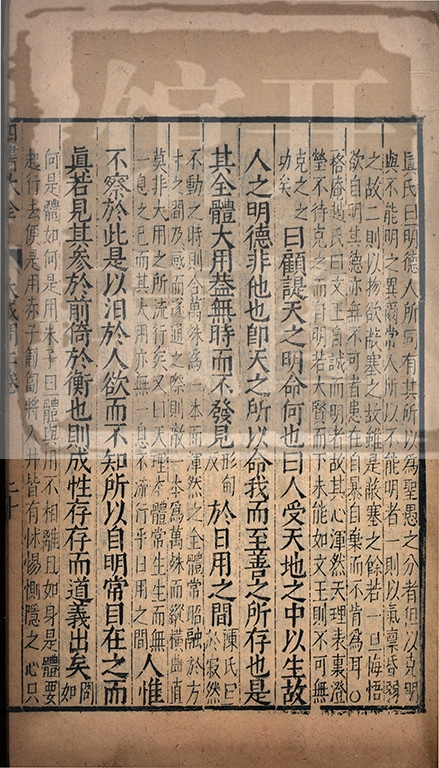 眞氏曰明德人所同有其所以爲聖愚之分者但以克明
與不能明之異爾常人所以不能明者一則以氣稟昏弱
之故二則以物欲蔽塞之故雖是蔽塞之餘若一旦悔悟
欲自明其德亦無不可者患在自暴自棄而不肯爲耳○
格庵趙氏曰文王自誠而明者故其心渾然天理表裏澄
瑩不待克之而自明若大賢而下未能如文王則不可無
克之之
功矣
曰顧諟天之明命何也曰人受天地之中以生故
人之明德非他也卽天之所以命我而至善之所存也是
其全體大用葢無時而不發見
形甸
反
於日用之間
陳氏曰
於寂然
不動之時則合萬殊爲一本而渾然之全體常昭融於方
寸之間及感而遂通之際則散一本爲萬殊而縱橫曲直
莫非大用之所流行矣又曰天理本體常生生而無
一息之已而其大用亦無一息不流行乎日用之間
人惟
不察於此是以汨於人欲而不知所以自明常目在之而
眞若見其參於前倚於衡也則成性存存而道義出矣
問
如
何是體如何是用朱子曰體與用不相離且如身是體要
起行去便是用赤子匍匐將入井皆有怵惕惻隱之心只
四書大全
大學或問上卷
二十